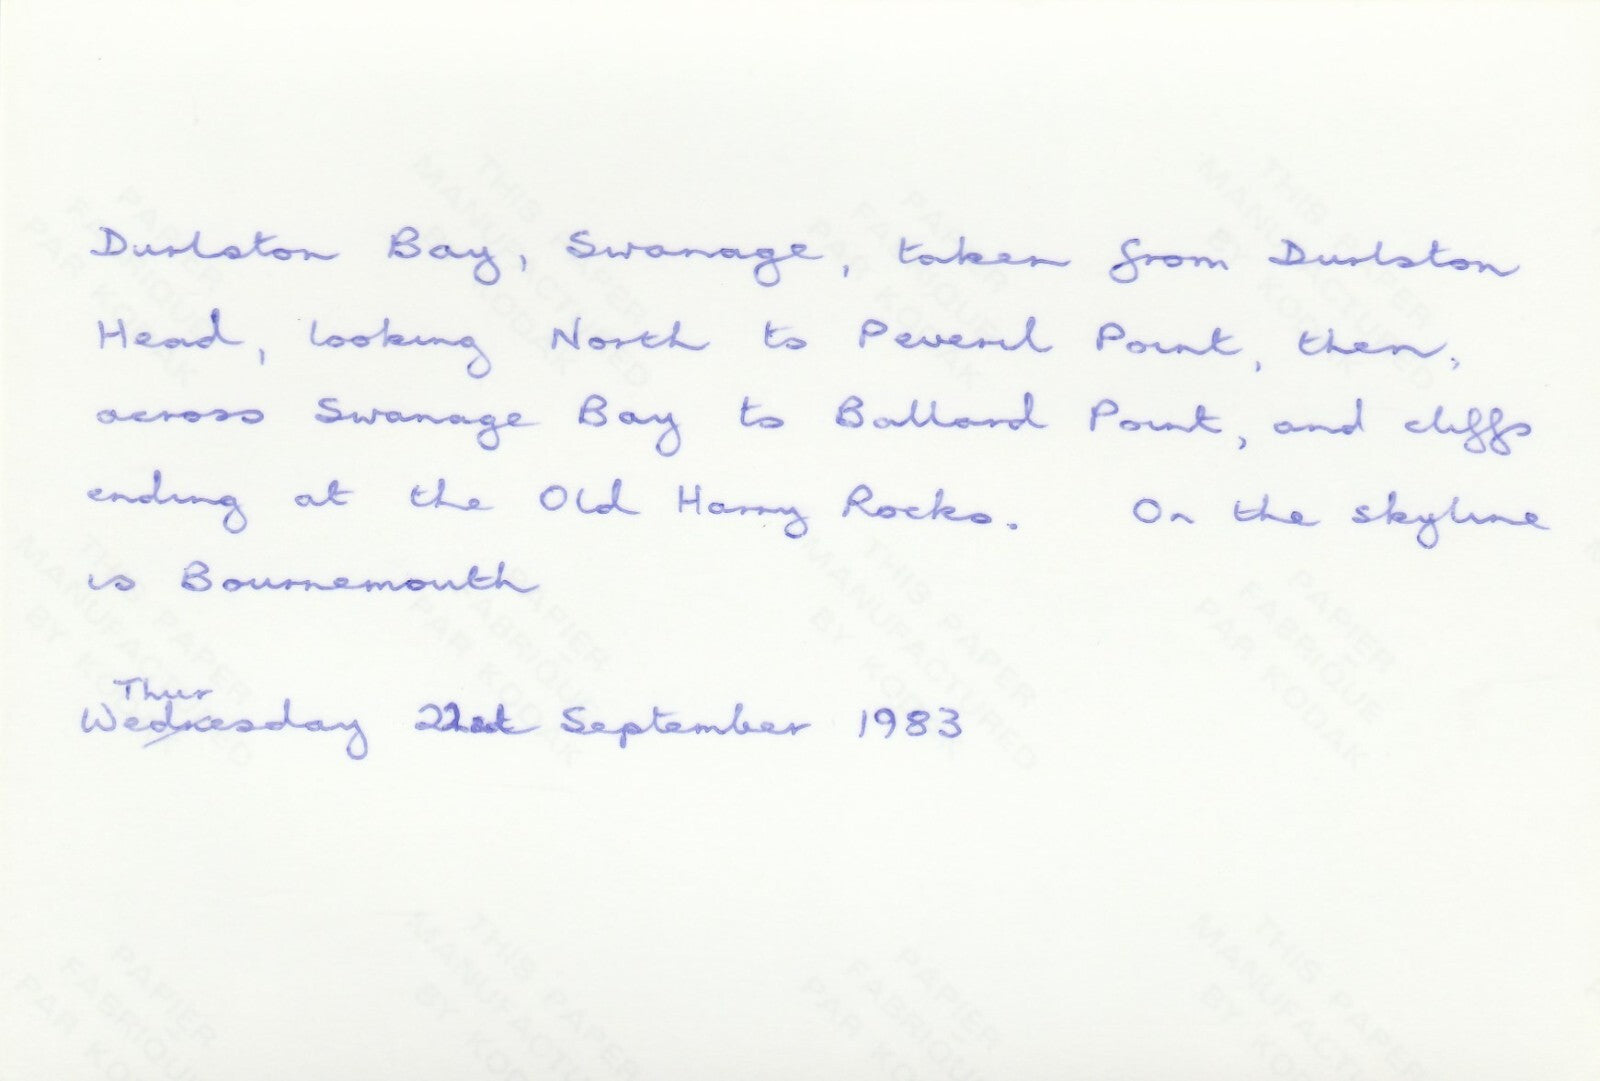 Durlston Bay, Swanage, taken from Durlston
Head, looking North to Peveril Point, then,
across Swanage Bay to Ballard Point, and cliffs
ending at the Old Harry Rocks. On the skyline
is Bournemouth
Thur
Wednesday 22nd September 1983
THIS PAPER
MANUFACTURED
BY KODAK
PAPIER
FABRIQUÉ
PAR KODAK